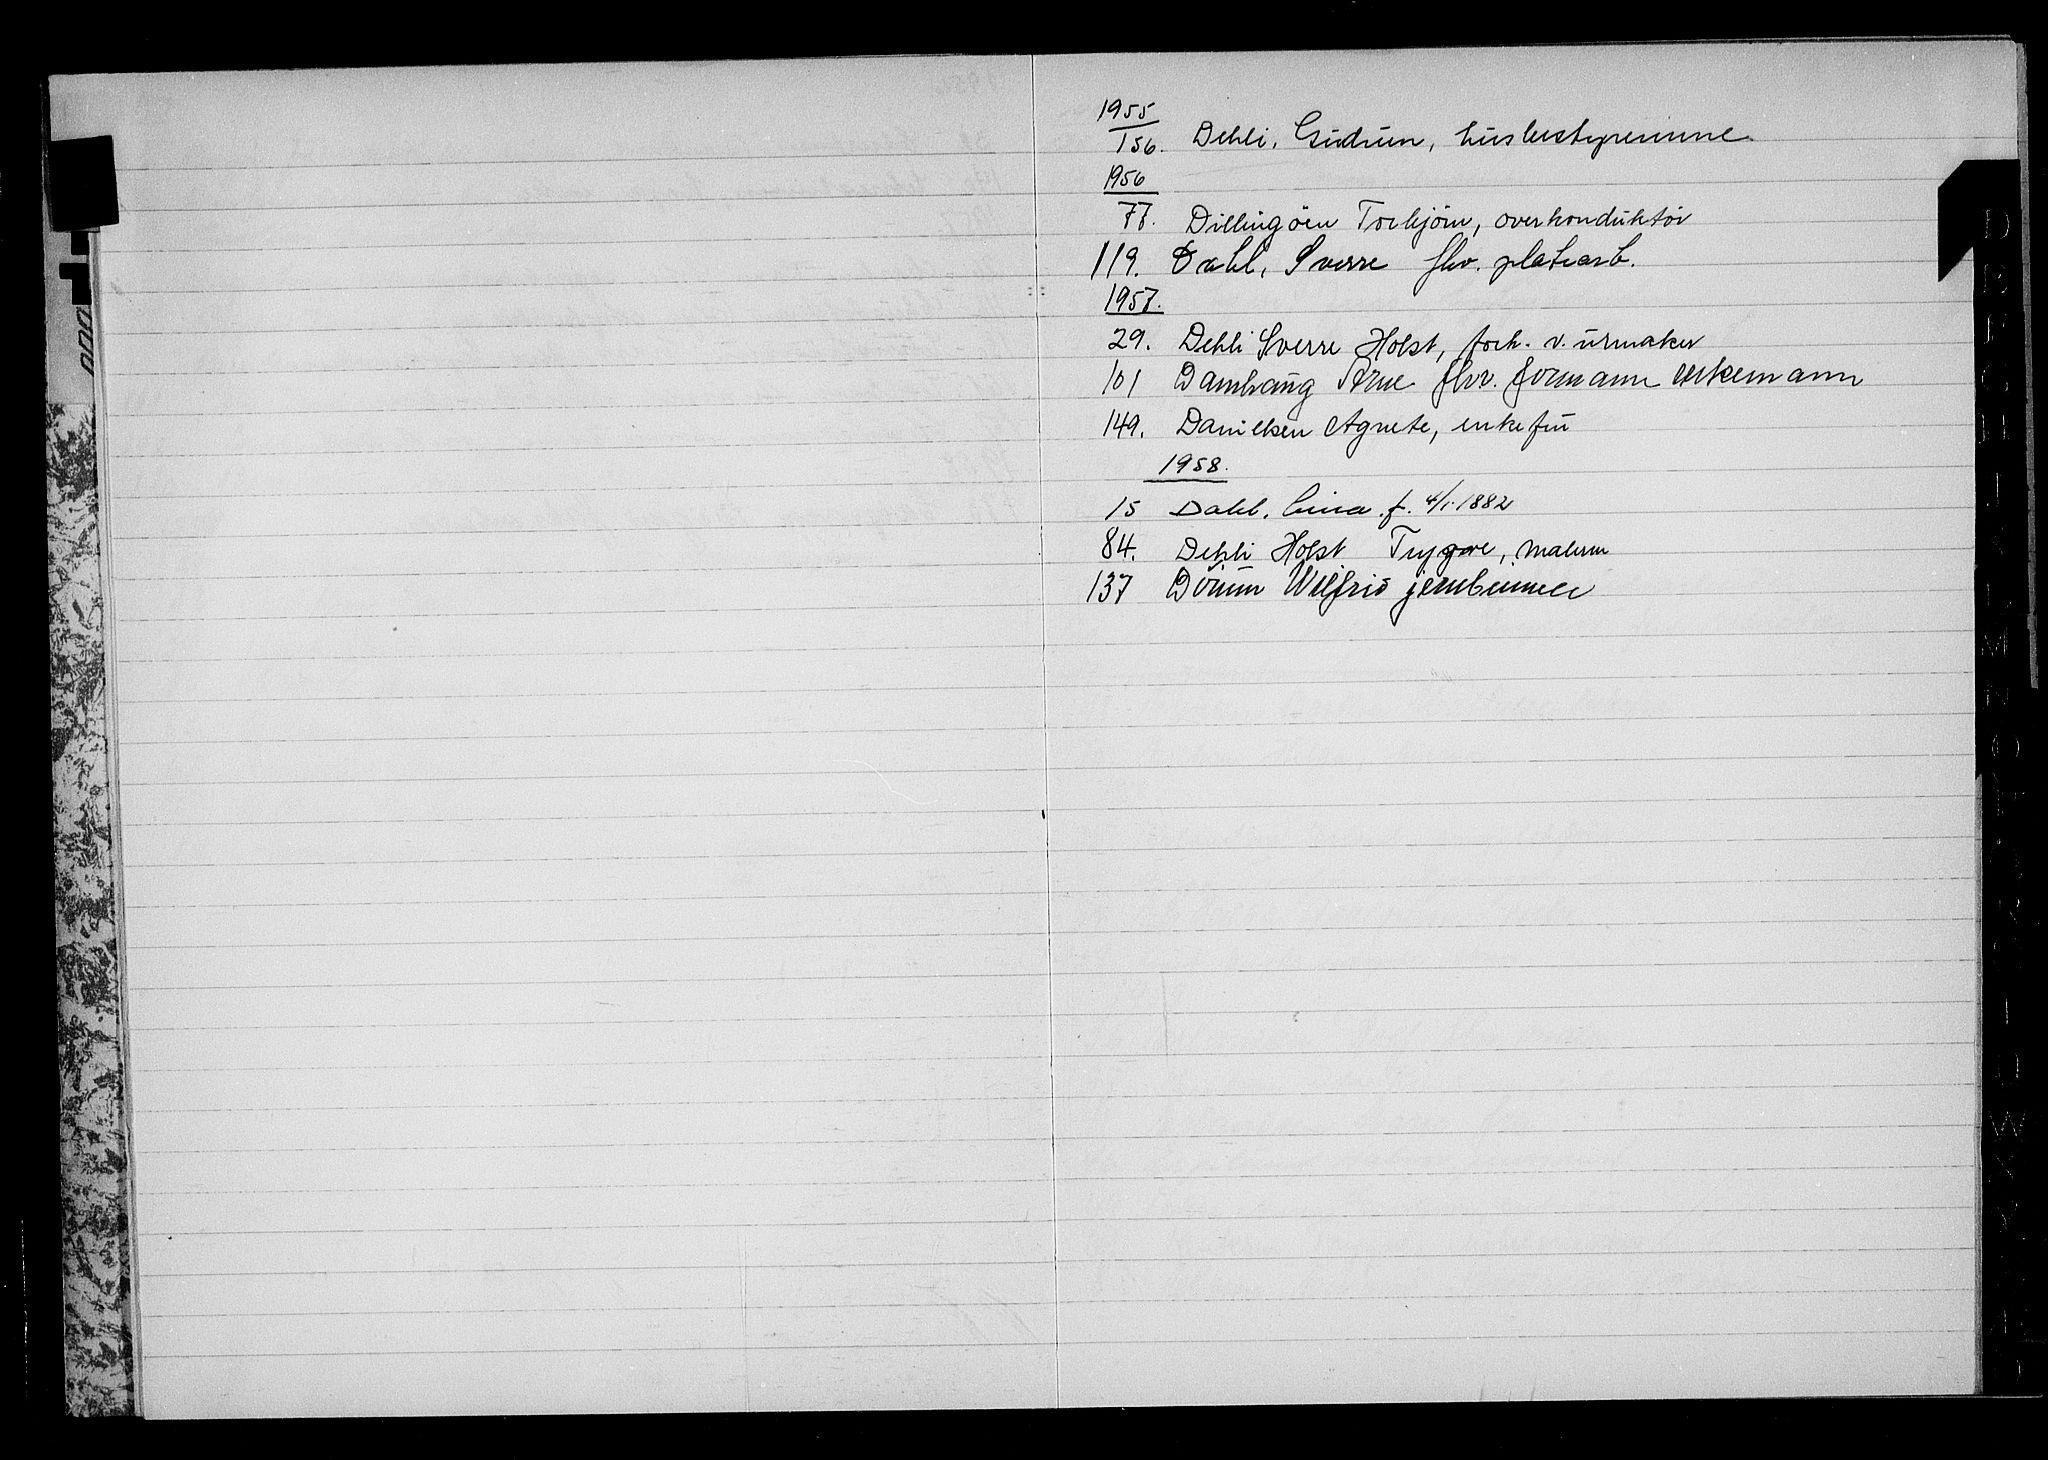 1955
156. Dehli, Gudrun, husbestyrerinne
1956
77. Dillingöen Torbjörn, overkonduktör
119. Dahl, Sverre fhv. platearb.
1957.
29. Dehli Sverre Holst, forh. v. urmaker
101 Damhaug Arne fhv. formann enkemann
149. Danielsen Agnete, enkefru
1958.
15 Dahl, f. 4/1. 1882
84. Dehli Holst Trygve, malerm
137 Dörum Wilfrid